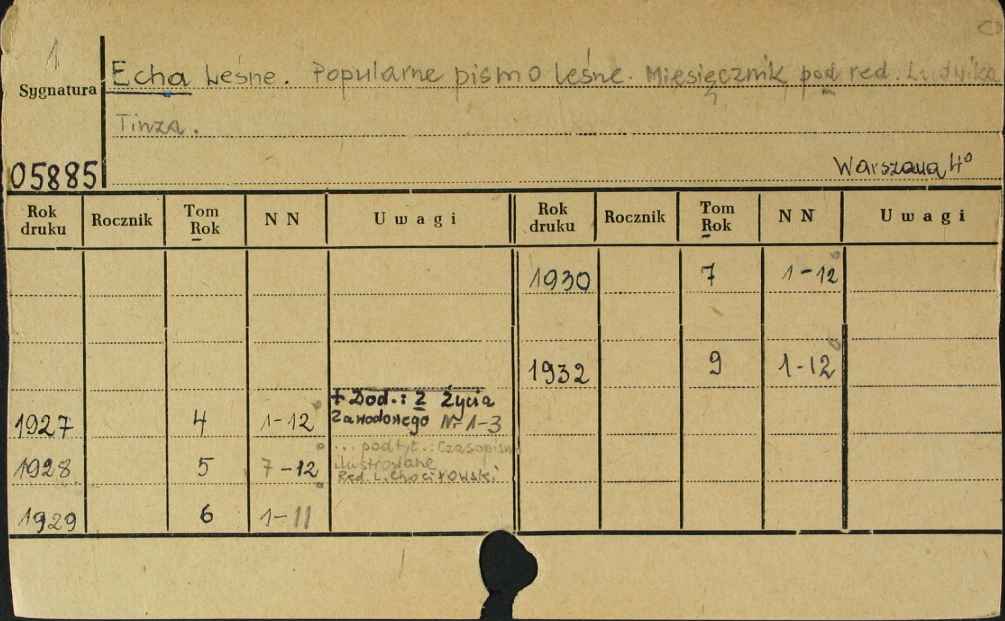 1
Sygnatura
Echa Leśne. Popularne pismo leśne. Miesięcznik pod red. Ludwika
Tinza.
05885
Warszawa 4°
Rok druku Rocznik Tom Rok NN Uwagi Rok druku Rocznik Tom Rok NN Uwagi
1930 7 1-12
1932 9 1-12
+ Dod.: Z Życia
1927 4 1-12 Zawodowego Nr 1-3
... podtyt.: Czasopismo
1928 5 7-12 ilustrowane
Red. L. Chociłowski
1929 6 1-11